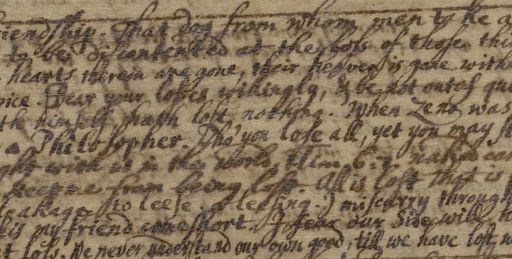 riendship. That dog from whom men to be a
to be discontented at the loss of those thi
hearts therein are gone, their heaven is gone with
once. Bear your losses willingly, & be not out of qui
th himself hath lost nothing. When Zeno was
a Philosopher. Tho' you lose all, yet you may
in the World, 1 Tim. 6. 7. nakd can
keep me from being lost. All is lost that is
leakage to leese a leeting.) miscarry through
is my friend come short. I fear our Side will h
t loss. We never understand our own good, till we have lost